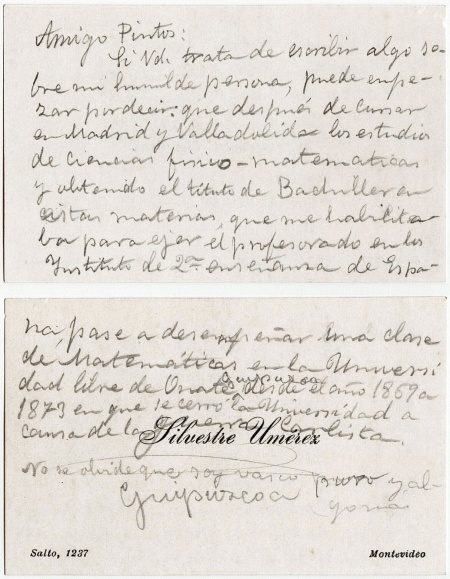 Amigo Pintos:
Si Vd. trata de escribir algo so-
bre mi humilde persona, puede empe-
zar por decir: que después de cursar
en Madrid y Valladolid los estudios
de ciencias físico-matematicas
y obtenido el título de Bachiller en
estas materias, que me habilita-
ba para ejer el profesorado en los
Instituto de 2ª enseñanza de Espa-
ña, pase a desempeñar una clase
de Matemáticas en la Universi
dad libre de Oñate, Guipuzcoa desde el año 1869 a
1873 en que se cerró la Universidad a
causa de la guerra Carlista.
Silvestre Umérez
No se olvide que soy vasco puro y de
Guipuzcoa
Salto, 1237
Montevideo